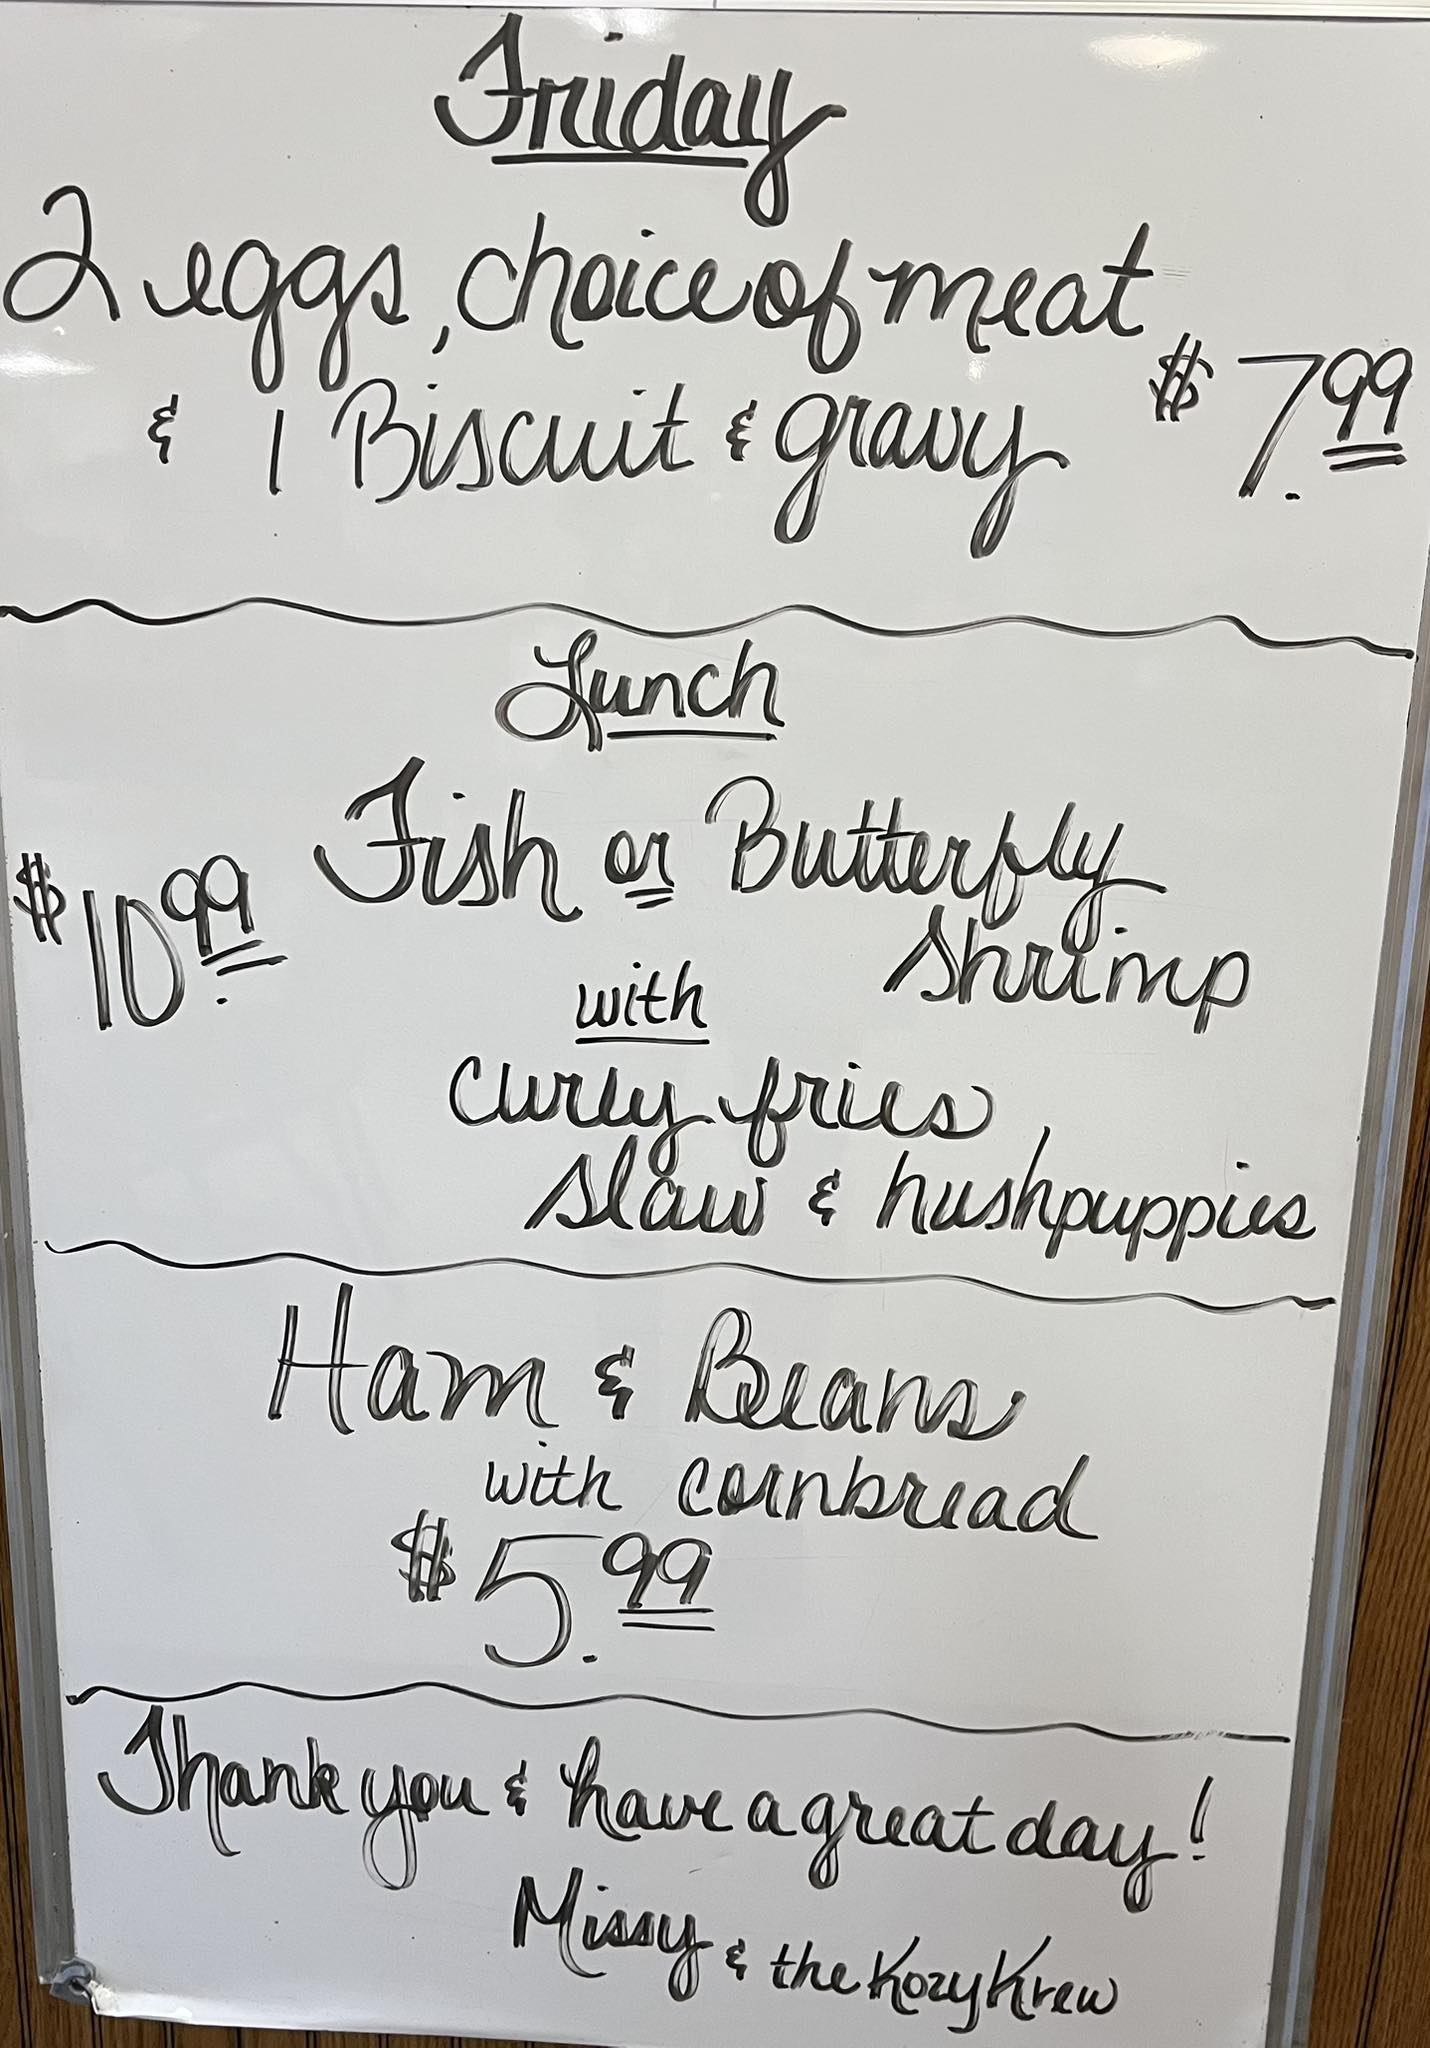 Friday
2 eggs, choice of meat,
& 1 Biscuit & gravy $7.99
Lunch
Fish or Butterfly
$10.99 shrimp
with
curly fries,
slaw & hushpuppies
Ham & Beans
with cornbread
$5.99
Thank you & have a great day!
Missy & the Kozy Krew